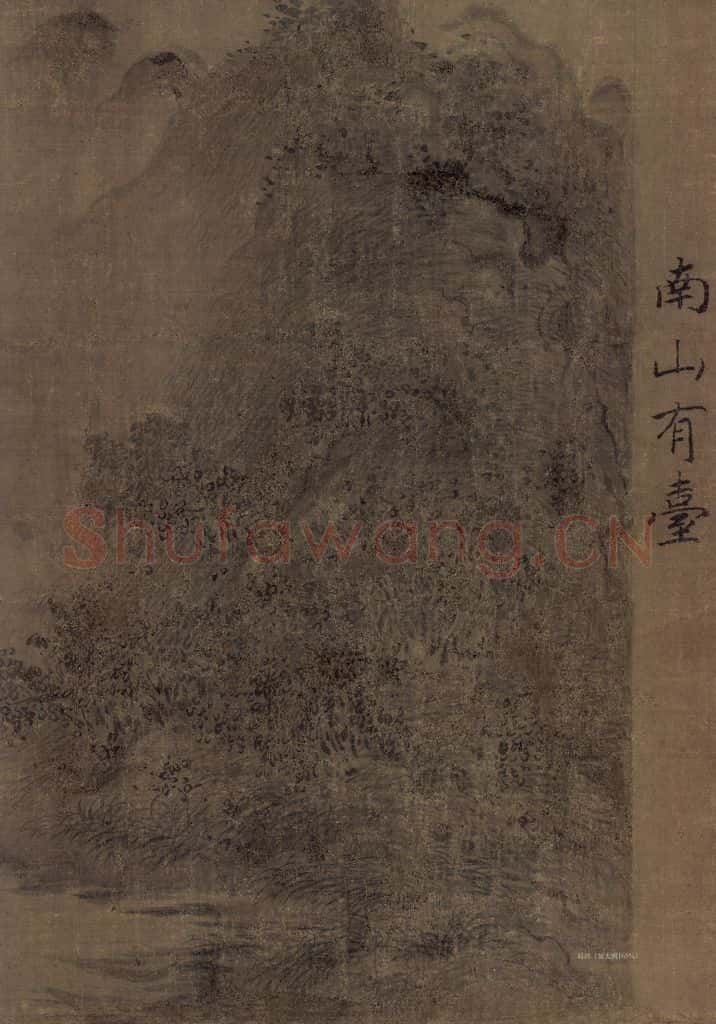 南山有臺
Shufawang.CN